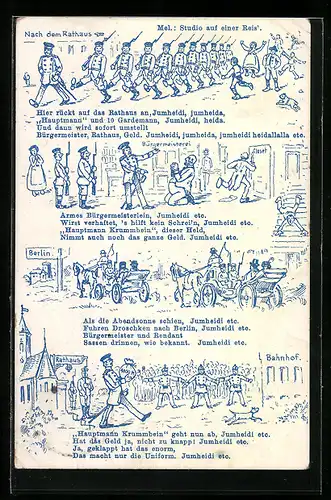 Nach dem Rathaus
Mel.: Studio auf einer Reis'.
Hier rückt auf das Rathaus an, Jumheidi, jumheida,
„Hauptmann" und 10 Gardemann, Jumheidi, heida.
Und dann wird sofort umstellt
Bürgermeister, Rathaus, Geld. Jumheidi, jumheida, jumheidi heidallala etc.
Bürgermeisterei
Armes Bürgermeisterlein, Jumheidi etc.
Wirst verhaftet, 's hilft kein Schrei'n, Jumheidi etc.
„Hauptmann Krummbein", dieser Held,
Nimmt auch noch das ganze Geld. Jumheidi etc.
Berlin.
Als die Abendsonne schien, Jumheidi etc.
Fuhren Droschken nach Berlin, Jumheidi etc.
Bürgermeister und Rendant
Sassen drinnen, wie bekannt. Jumheidi etc.
Rathaus
Bahnhof.
„Hauptmann Krummbein" geht nun ab, Jumheidi etc.
Hat das Geld ja, nicht zu knapp! Jumheidi etc.
Ja, geklappt hat das enorm,
Das macht nur die Uniform. Jumheidi etc.